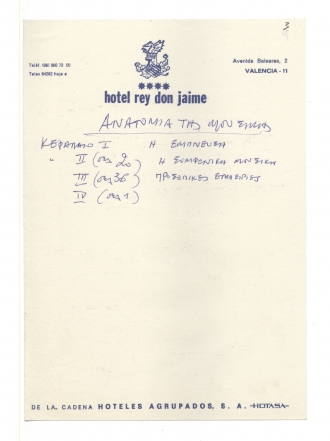 3
Teléf. 360 730 00
Telex 64252 hoja e
Avenida Baleares, 2
VALENCIA - 11
hotel rey don jaime
ΑΝΑΤΟΜΙΑ ΤΗΣ ΜΟΥΣΙΚΗΣ
ΚΕΦΑΛΑΙΟ I Η ΕΜΠΝΕΥΣΗ
" II (σελ 20) Η ΣΥΜΦΩΝΙΚΗ ΜΟΥΣΙΚΗ
III (σελ 36) ΠΡΟΣΩΠΙΚΕΣ
IV (σελ 1)
DE LA CADENA HOTELES AGRUPADOS, S. A. -HOTASA-